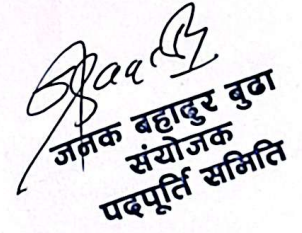 जनक बहादुर बुढा
संयोजक
पदपूर्ति समिति